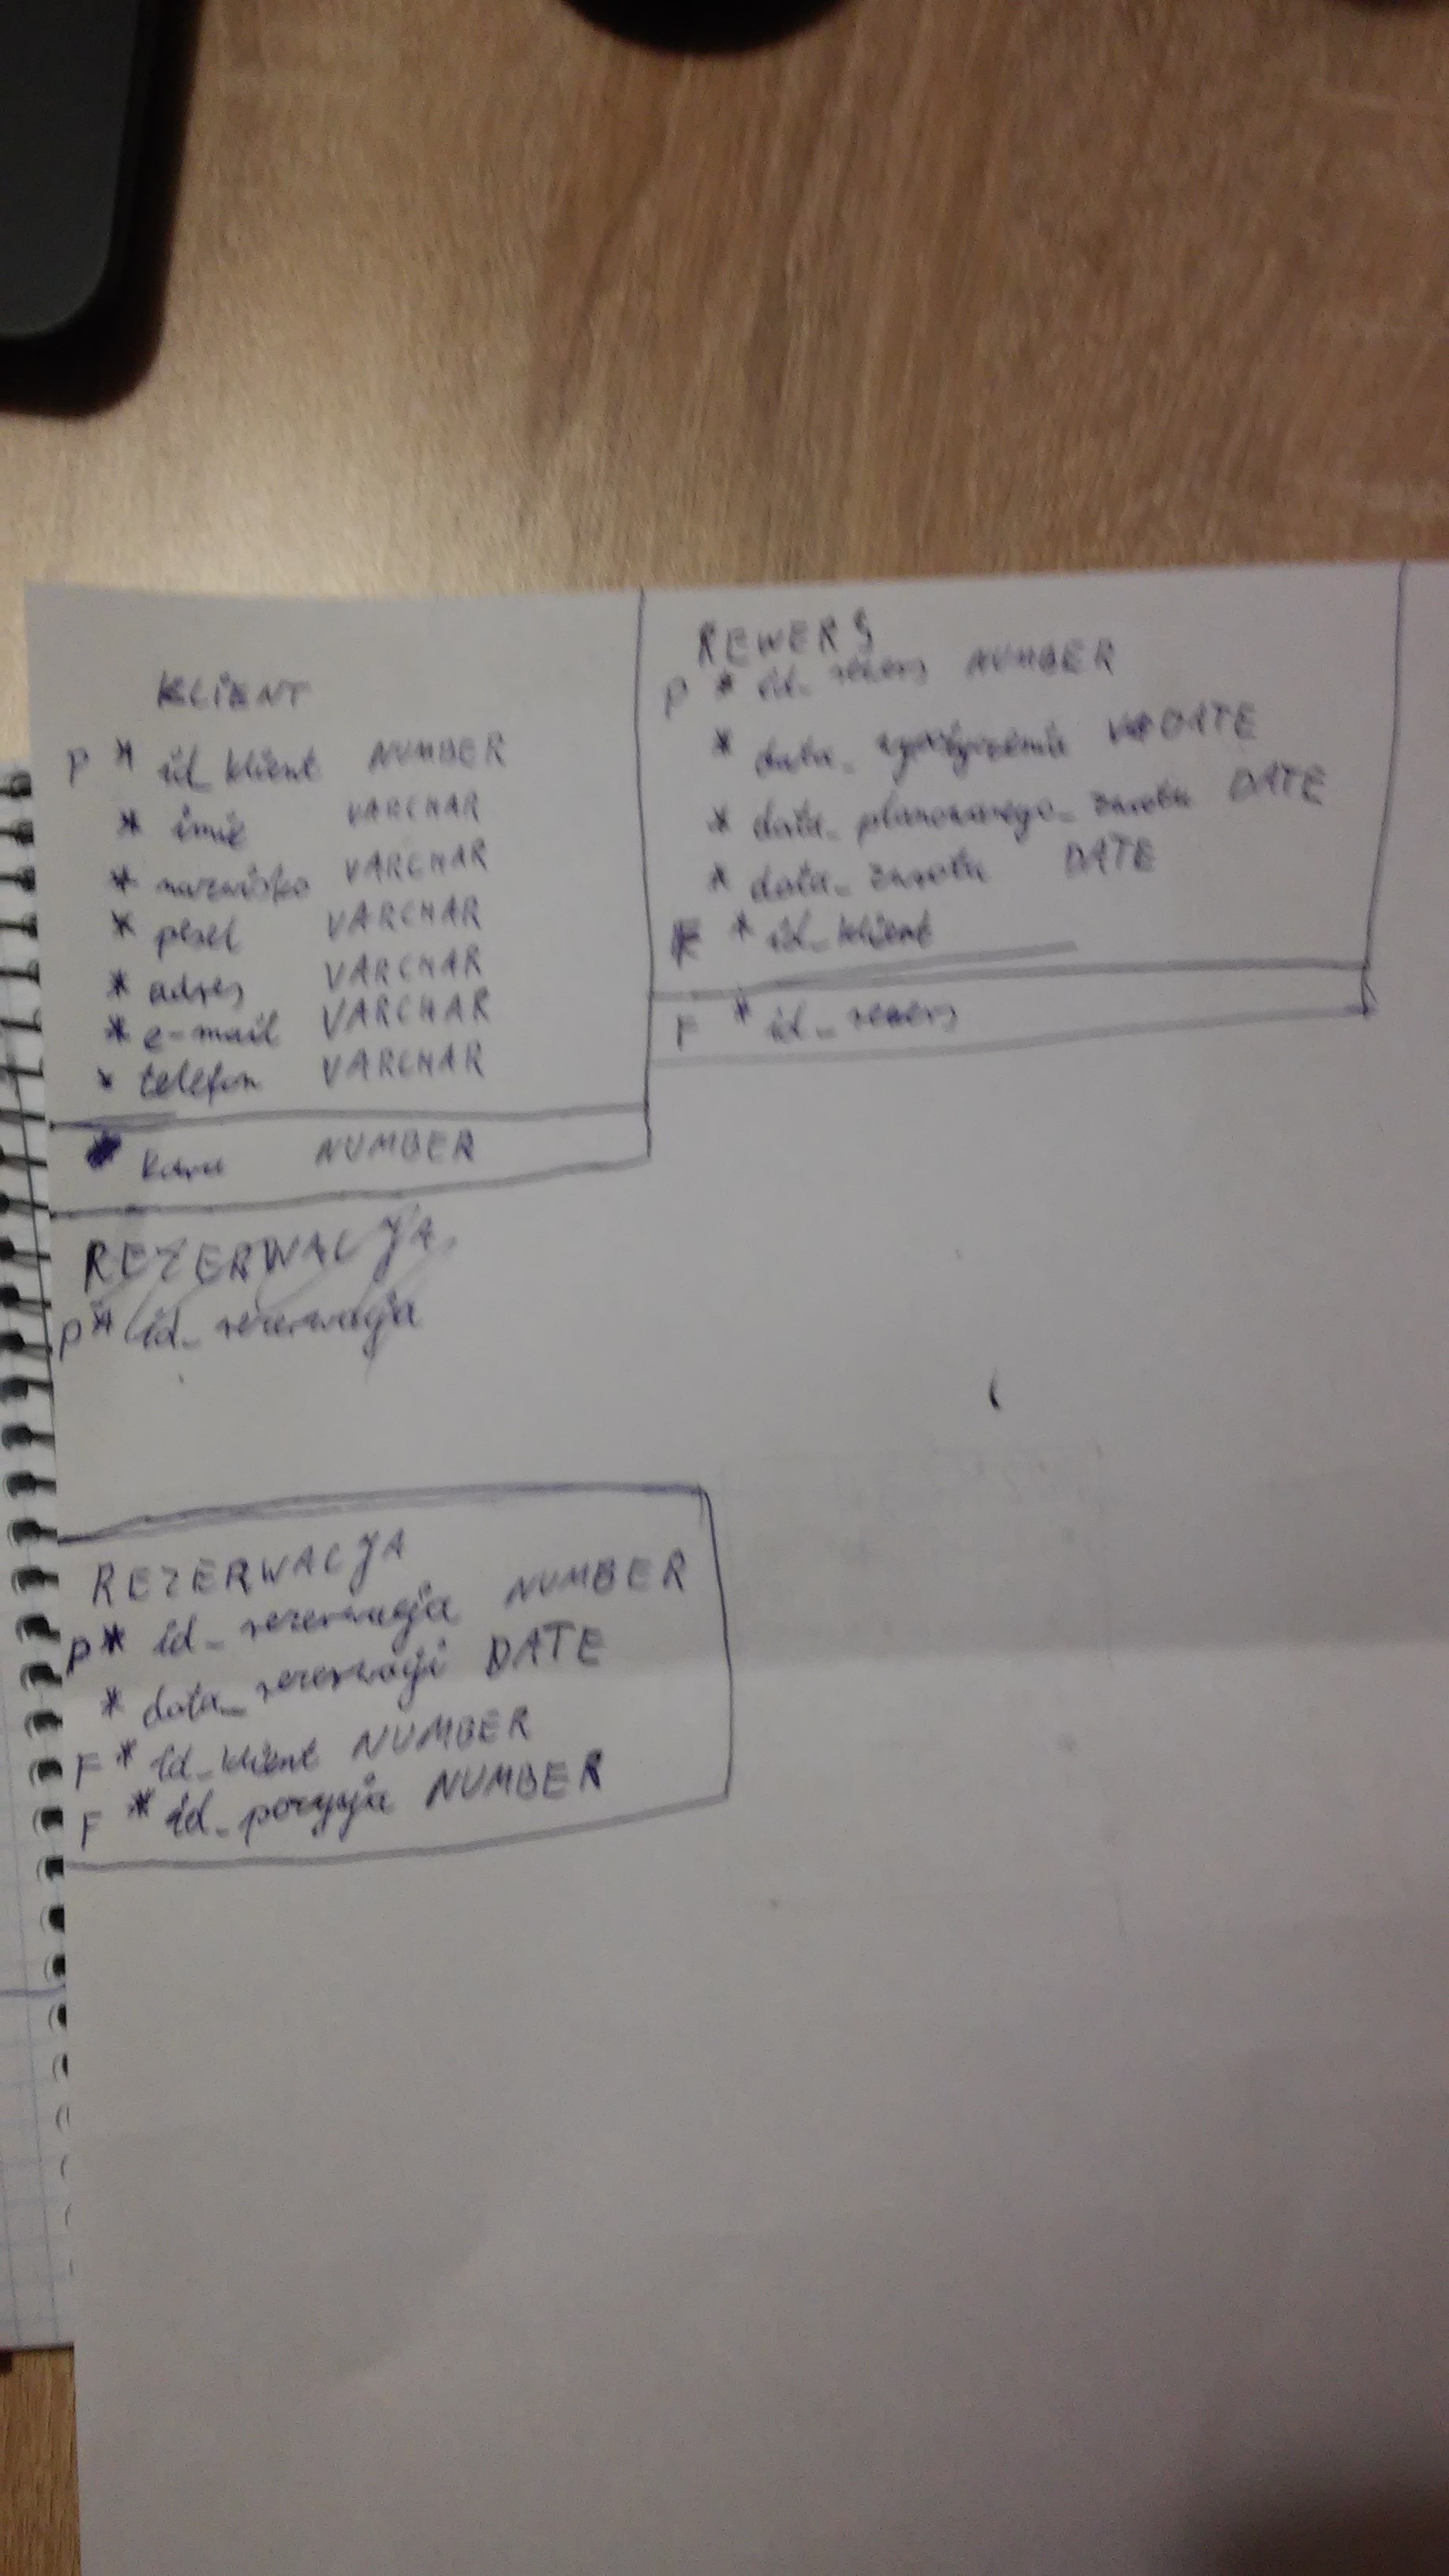 KLIENT
P * id_klient NUMBER
* imię VARCHAR
* nazwisko VARCHAR
* pesel VARCHAR
* adres VARCHAR
* e-mail VARCHAR
* telefon VARCHAR
kara NUMBER
REWERS
P * id_rewers NUMBER
* data_wypożyczenia DATE
* data_planowanego_zwrotu DATE
* data_zwrotu DATE
F * id_klient
F * id_rewers
REZERWACJA
P * id_rezerwacja
REZERWACJA
P * id_rezerwacja NUMBER
* data_rezerwacji DATE
F * id_klient NUMBER
F * id_pozycja NUMBER